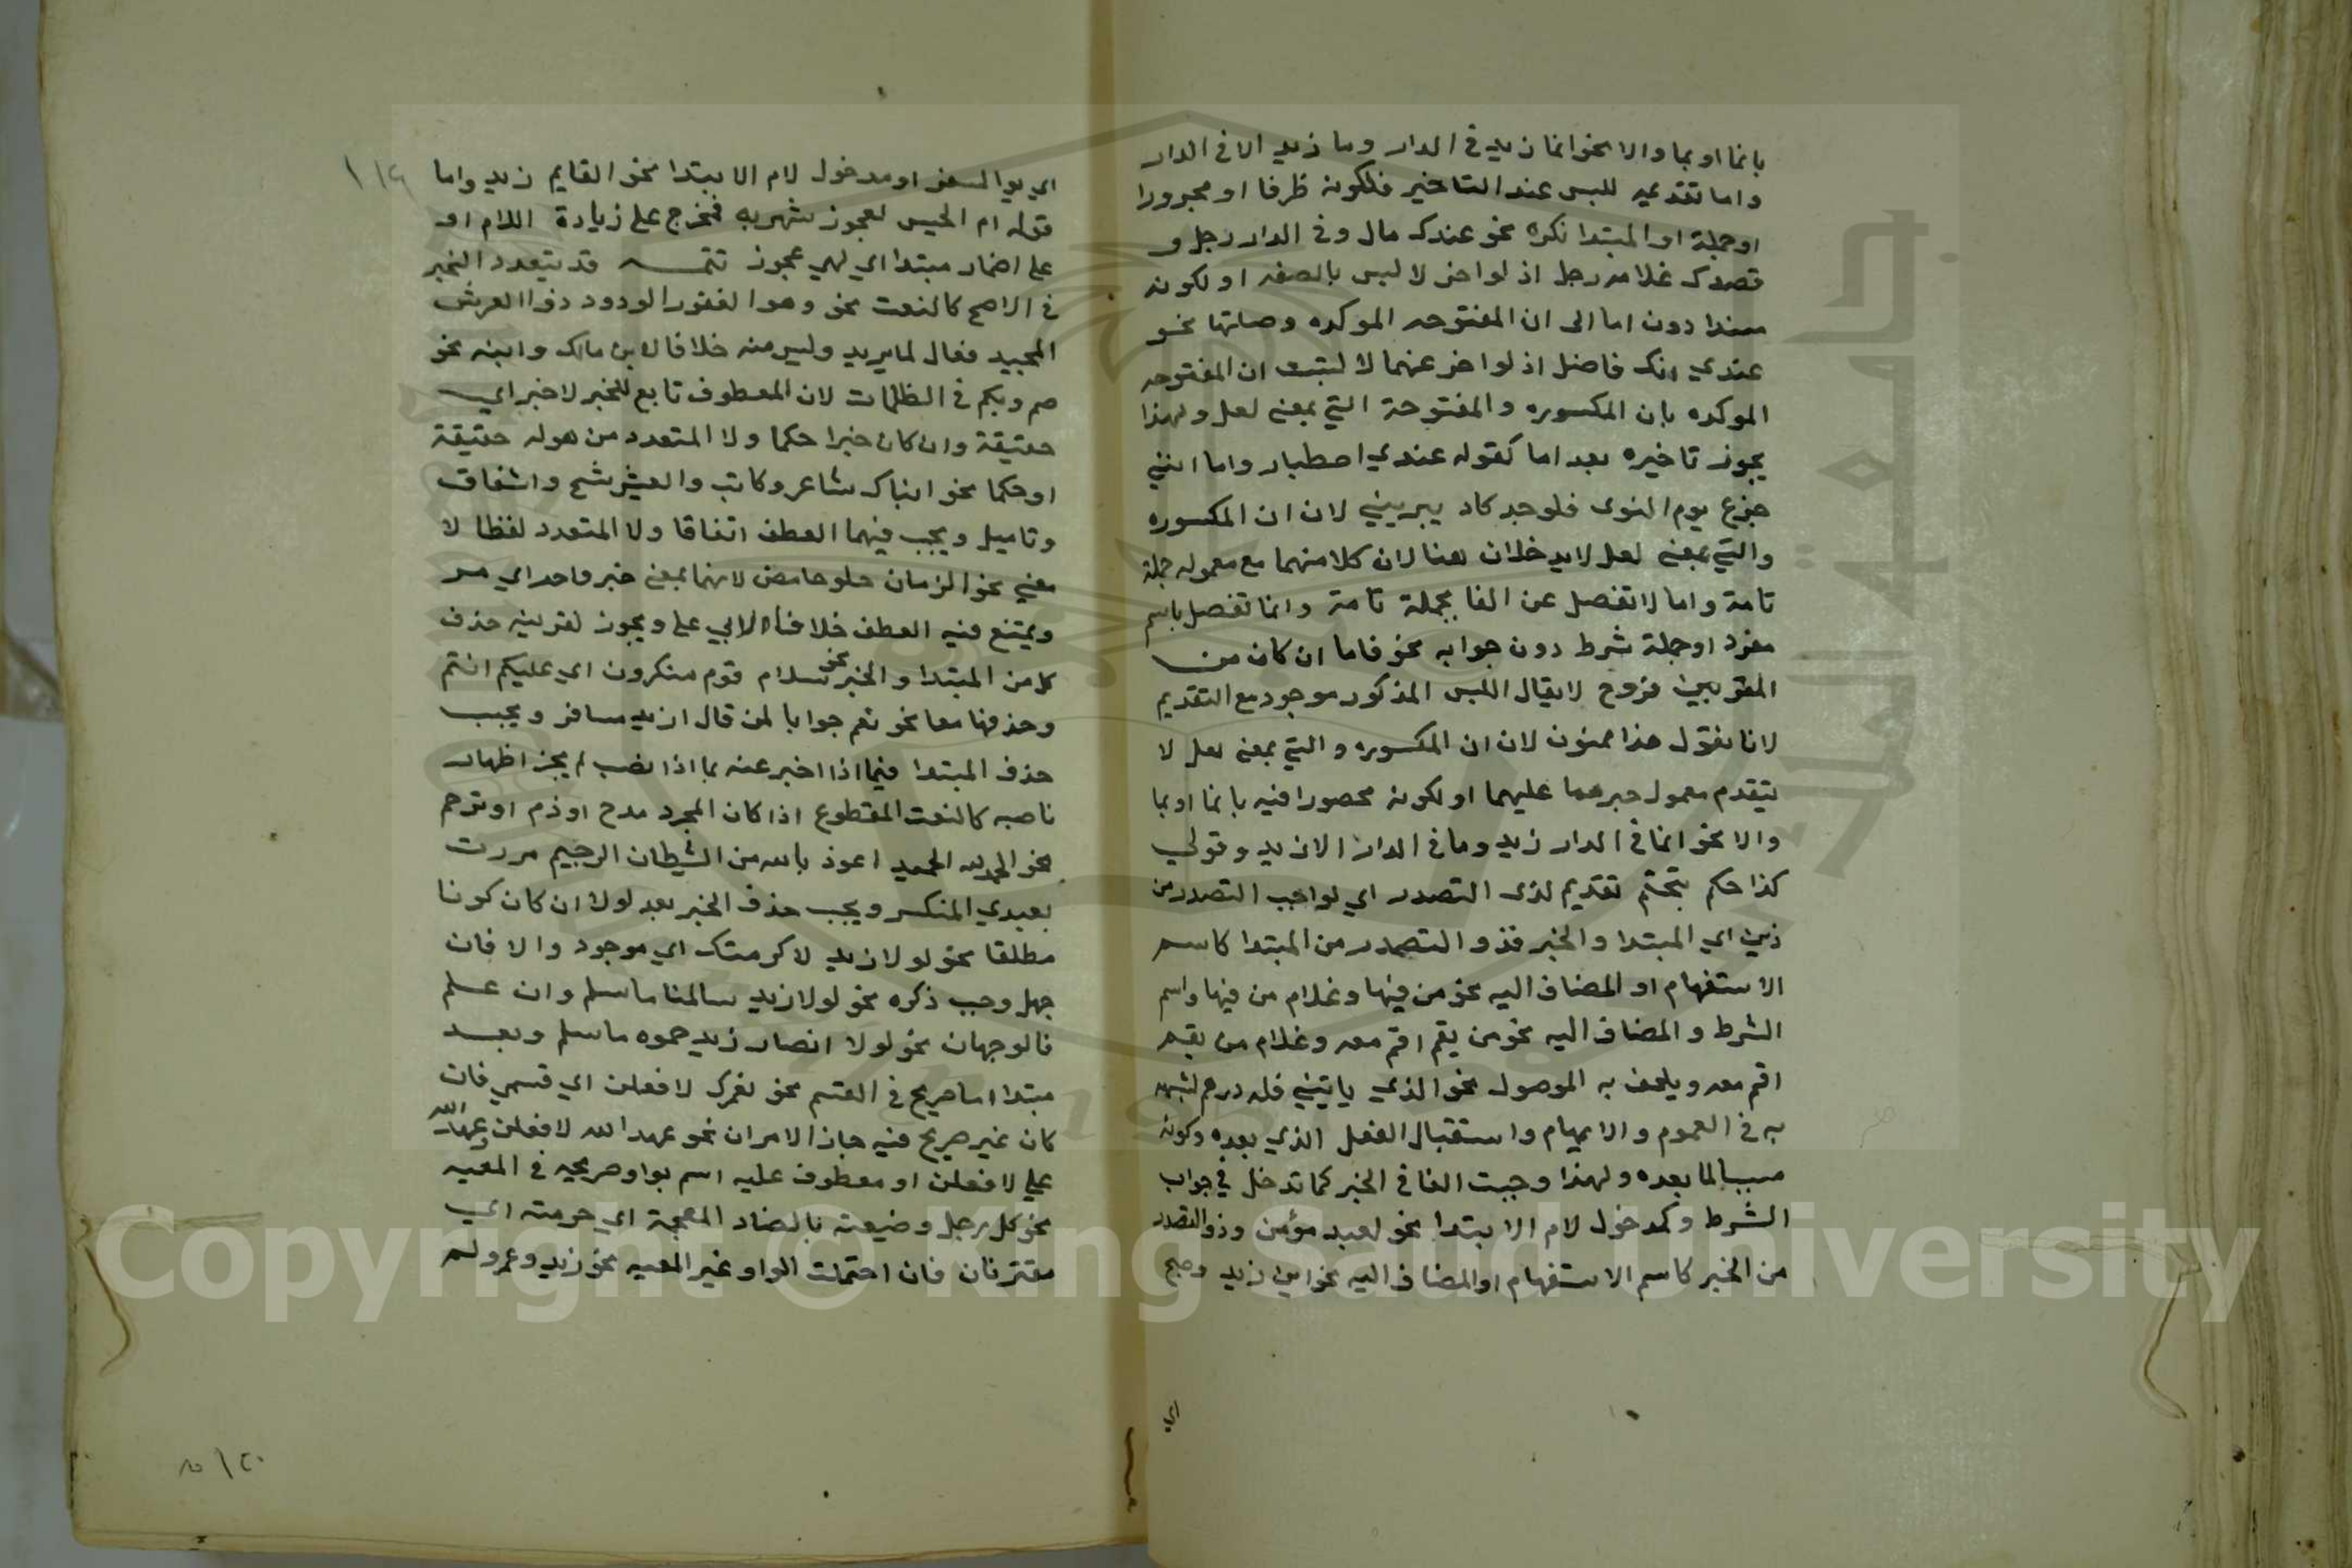 بانما او بما والا نحو انما زيد في الدار وما زيد الا في الدار
واما تقديمه للبس عند التاخير فلكونه ظرفا او مجرورا
او جملة او المبتدا نكره نحو عندك مال وفي الدار رجل و
قصدك غلامه رجل اذ لو اخر لالبس بالصفه او لكونه
مسندا دون اما الى ان المفتوحه الموكده وصلتها نحو
عندي انك فاضل اذ لو اخر عنهما لالتبست ان المفتوحه
الموكده بان المكسوره والمفتوحة التي بمعنى لعل ولهذا
يجوز تاخيره بعد اما كقوله عندي اصطبار واما انني
جزع يوم النوى فلوجد كاد يبريني لان ان المكسوره
والتي بمعنى لعل لا يدخلان هنا لان كلا منهما مع معموله جملة
تامة واما لا تفصل عن الفا بجملة تامة وانما تفصل باسم
مفرد او جملة شرط دون جوابه نحو فاما ان كان من
المقربين فروح لا يقال اللبس المذكور موجود مع التقديم
لانا نقول هذا ممنوع لان ان المكسوره والتي بمعنى لعل لا
يتقدم معمول خبرهما عليهما او لكونه محصورا فيه بانما او بما
والا نحو انما في الدار زيد وما في الدار الا زيد وقولي
كذا حكم بتحتم تقديم لذى التصدر اي لواجب التصدر من
ذين اي المبتدا والخبر فذو التصدر من المبتدا كاسم
الاستفهام او المضاف اليه نحو من فيها وغلام من فيها واسم
الشرط والمضاف اليه نحو من يقم اقم معه وغلام من يقم
اقم معه ويلحق به الموصول نحو الذي ياتيني فله درهم لشبهه
به في العموم والابهام واستقبال الفعل الذي بعده وكونه
سببا لما بعده ولهذا وجبت الفا في الخبر كما تدخل في جواب
الشرط وكمدخول لام الابتدا نحو لعبد مؤمن وذو التصدر
من الخبر كاسم الاستفهام او المضاف اليه نحو اين زيد وصبح
اي
اي يوم السفر او مدخول لام الابتدا نحو القايم زيد واما
قوله ام الحليس لعجوز شهربه فمخرج على زيادة اللام او
على اضمار مبتدا اي لهي عجوز تتمه قد يتعدد الخبر
في الاصح كالنعت نحو وهو الغفور الودود ذو العرش
المجيد فعال لما يريد وليس منه خلافا لابن مالك وابنه نحو
صم وبكم في الظلمات لان المعطوف تابع للخبر لا خبر اي
حقيقة وان كان خبرا حكما ولا المتعدد من هو له حقيقة
او حكما نحو ابناك شاعر وكاتب والعيش شح واشفاق
وتاميل ويجب فيهما العطف اتفاقا ولا المتعدد لفظا لا
معنى نحو الزمان حلو حامض لانهما بمعنى خبر واحد اي مز
ويمتنع فيه العطف خلافا لابي علي ويجوز لقرينه حذف
كل من المبتدا والخبر نحو سلام قوم منكرون اي عليكم انتم
وحذفهما معا نحو نعم جوابا لمن قال ازيد مسافر ويجب
حذف المبتدا فيما اذا اخبر عنه بما اذا نصب لم يجز اظهار
ناصبه كالنعت المقطوع اذا كان لمجرد مدح او ذم او ترحم
نحو الحمد لله الحميد اعوذ بالله من الشيطان الرجيم مررت
بعبدي المنكسر ويجب حذف الخبر بعد لولا ان كان كونا
مطلقا نحو لولا زيد لاكرمتك اي موجود والا فان
جهل وجب ذكره نحو لولا زيد سالمنا ما سلم وان علم
فالوجهان نحو لولا انصار زيد حموه ما سلم وبعد
مبتدا اما صريح في القسم نحو لعمرك لافعلن اي قسمي فان
كان غير صريح فيه جاز الامران نحو عهد الله لافعلن وعهد الله
علي لافعلن او معطوف عليه اسم بواو صريحه في المعيه
نحو كل رجل وضيعته بالضاد المعجمة اي حرمته اي
مقترنان فان احتملت الواو غير المعيه نحو زيد وعمرو لم
Copyright © King Saud University